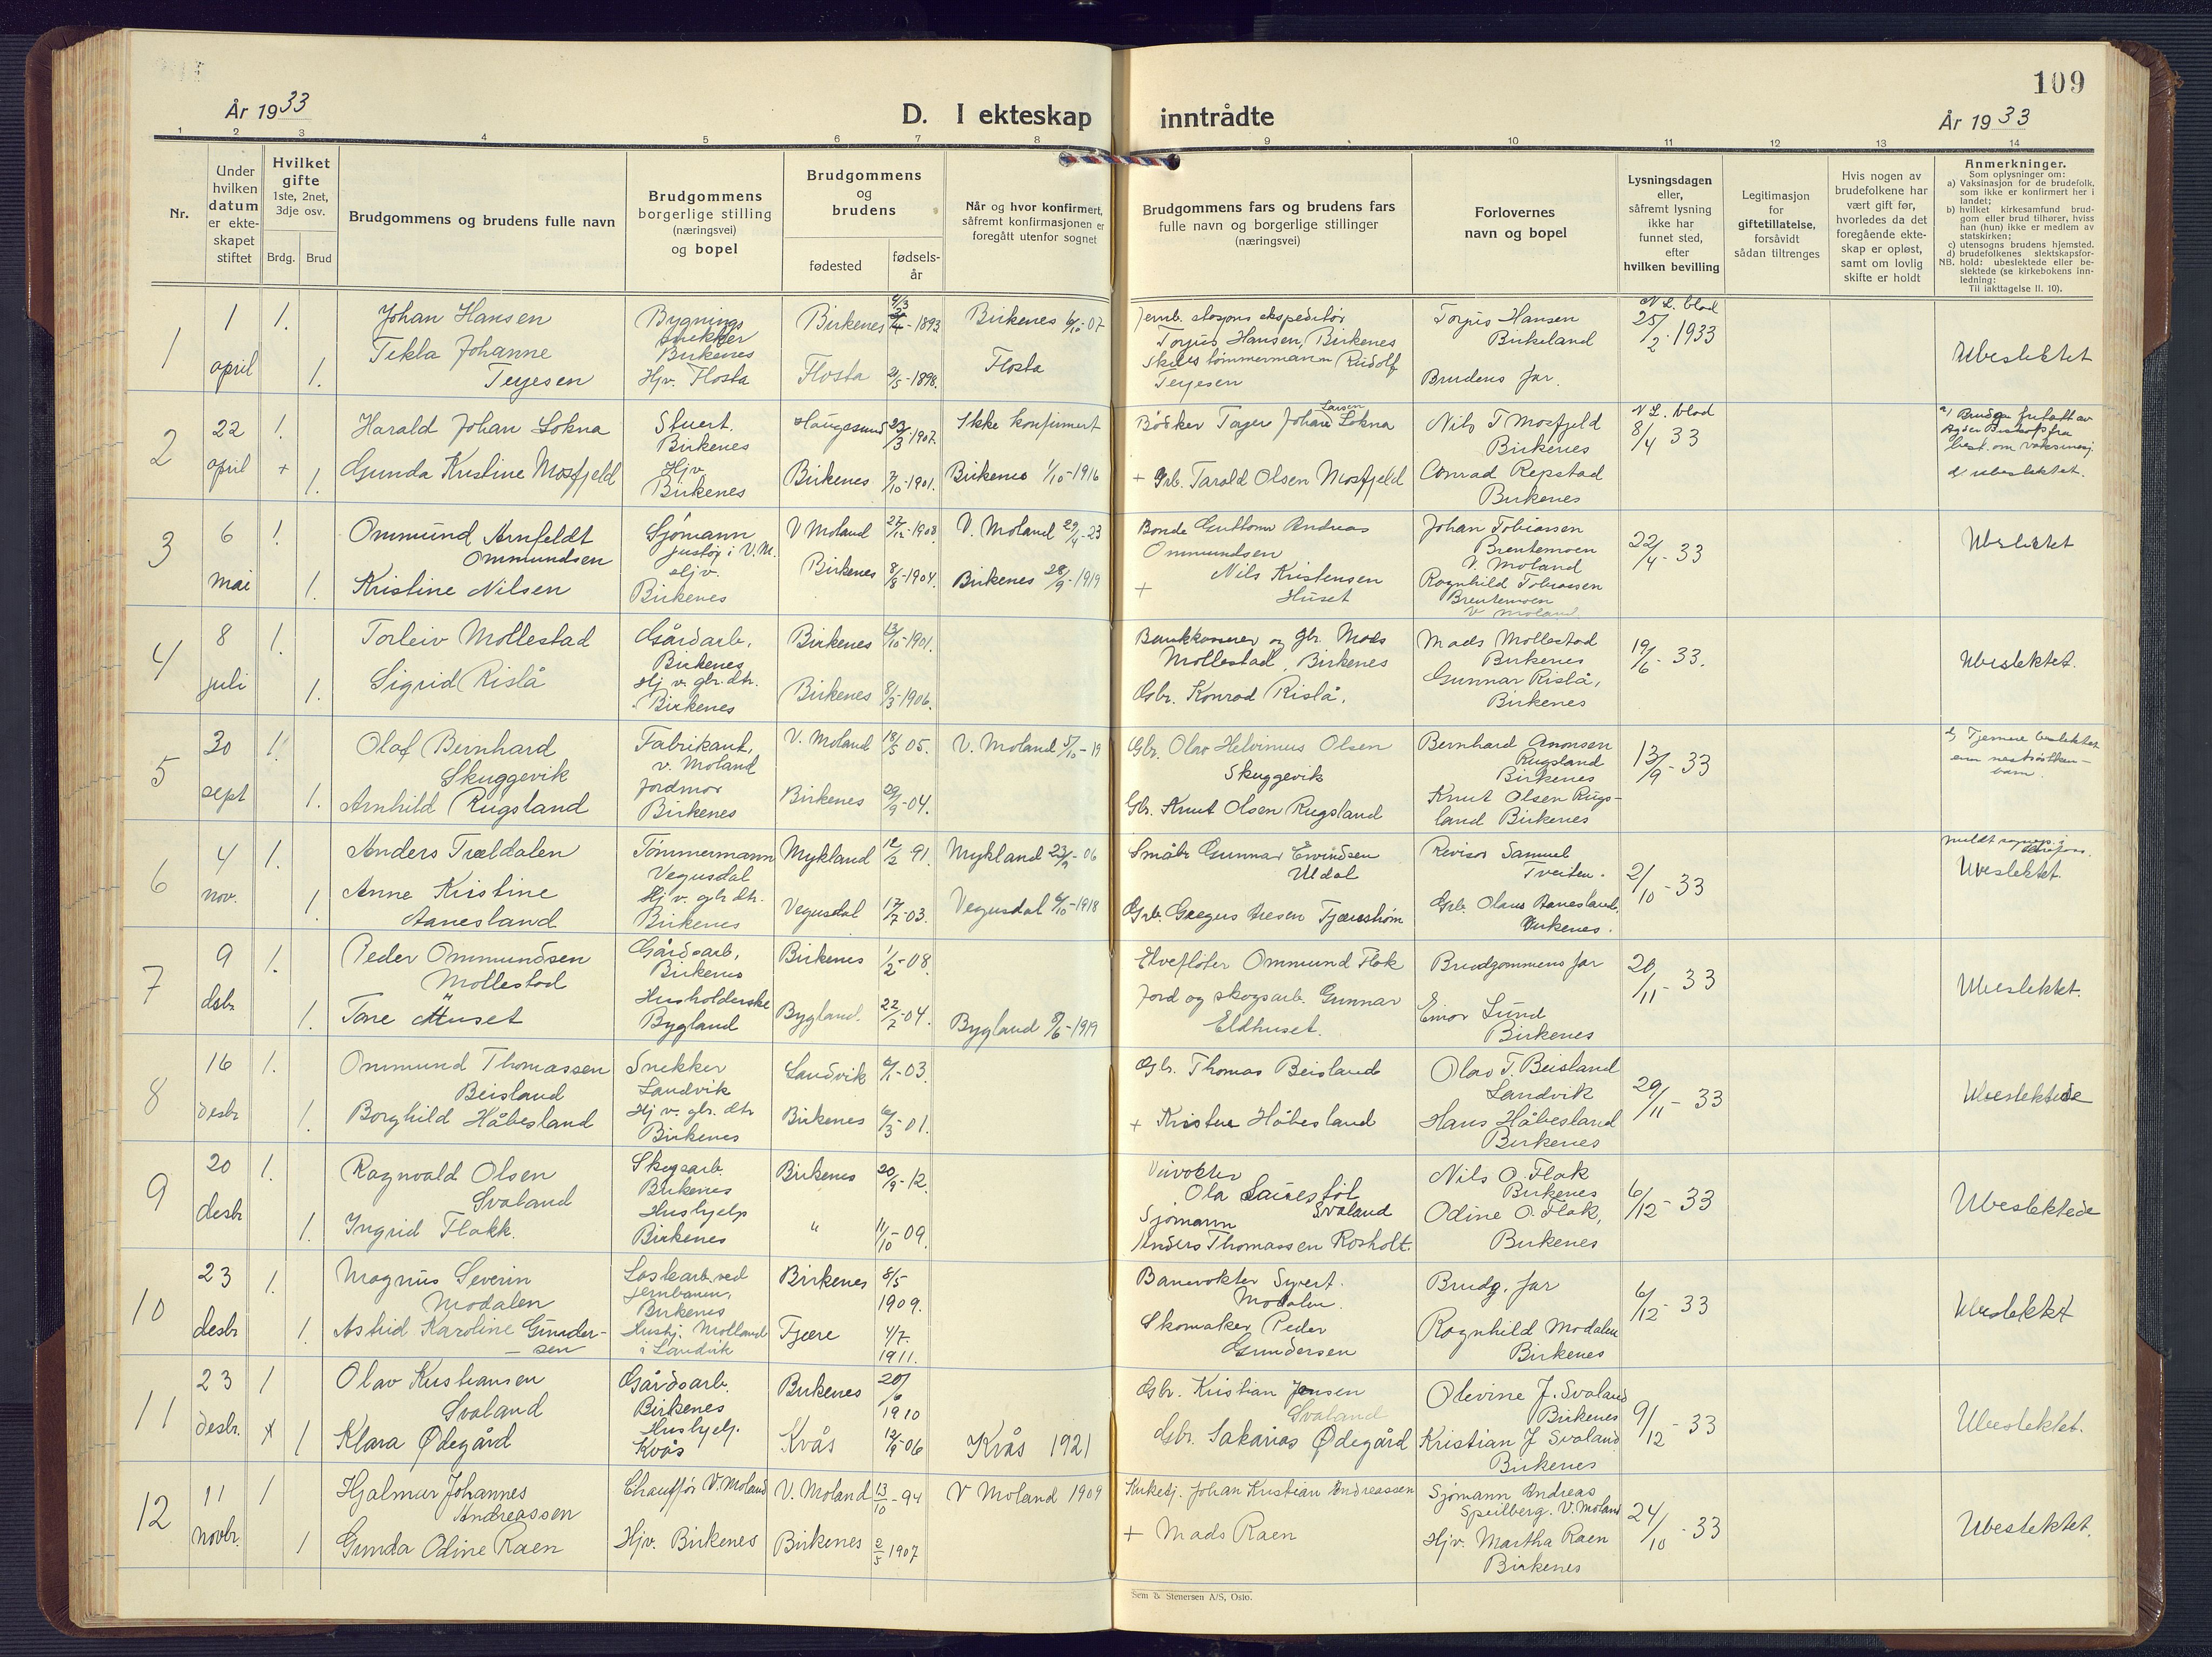 109
År 1933
D. I ekteskap inntrådte
År 1933
1 2 3 4 5 6 7 8 9 10 11 12 13 14
Nr.
Under
hvilken
datum
er ekte-
skapet
stiftet
Hvilket
gifte
1ste, 2net,
3dje osv.
Brdg. Brud
Brudgommens og brudens fulle navn
Brudgommens
borgerlige stilling
(næringsvei)
og bopel
Brudgommens
og
brudens
fødested
fødsels-
år
Når og hvor konfirmert,
såfremt konfirmasjonen er
foregått utenfor sognet
Brudgommens fars og brudens fars
fulle navn og borgerlige stillinger
(næringsvei)
Forlovernes
navn og bopel
Lysningsdagen
eller,
såfremt lysning
ikke har
funnet sted,
efter
hvilken bevilling
Legitimasjon
for
giftetillatelse,
forsåvidt
sådan tiltrenges
Hvis nogen av
brudefolkene har
vært gift før,
hvorledes da det
foregående ekte-
skap er opløst,
samt om lovlig
skifte er holdt
Anmerkninger.
Som oplysninger om:
a) Vaksinasjon for de brudefolk.
som ikke er konfirmert her i
landet;
b) hvilket kirkesamfund brud-
gom eller brud tilhører, hviss
han (hun) ikke er medlem av
statskirken;
c) utensogns brudens hjemsted.
d) brudefolkenes slektskapsfor-
NB. hold: ubeslektede eller be-
slektede (se kirkebokens inn-
ledning:
Til iakttagelse II. 10).
1
1 april
1.
Johan Hansen
Bygnings
snekker
Birkenes
Birkenes
1893
Birkenes 6/10-07
Jernb. stasjons ekspeditør
Torjus Hansen, Birkenes
Torjus Hansen
Birkeland
N L. blad
25/2 1933
Ubeslektet
1.
Tekla Johanne
Terjesen
Hjv. Flosta
Flosta
2/5-1898.
Flosta
Skibstømmermann Rudolf
Terjesen
Brudens far.
2
22 april
1.
Harald Johan Lokna
Stuert.
Birkenes
Haugesund
23/3 1907
Ikke konfirmert
Bødker Tarjer Johan Larsen Lokna
Nils T Mosfjeld
Birkenes
N L. blad
8/4 33
+ 1.
Gunda Kristine Mosfjeld
Hjv.
Birkenes
Birkenes
7/10-1901.
Birkenes 1/10-1916
+ Grb. Tarald Olsen Mosfjeld
Conrad Repstad
Birkenes
d/ ubeslektet.
3
6 mai
1.
Ommund Arnfeldt
Ommundsen
Sjømann
Justøy i V.M.
V Moland
27/12-1908
V. Moland 29/4-23
Bonde Guttorm Andreas
Ommundsen
Johan Tobiassen
Brentemoen
V. Moland
22/4-33
Ubeslektet
1.
Kristine Nilsen
Hjv.
Birkenes
Birkenes
8/8-1904.
Birkenes 28/9-1919
+ Nils Kristensen
Huset
Ragnhild Tobiassen
Brentemoen
V Moland
4
8 juli
1.
Torleiv Mollestad
Gårdarb.
Birkenes
Birkenes
13/10-1901.
Bankkasserer og gbr. Mads
Mollestad, Birkenes
Mads Mollestad
Birkenes
19/6-33.
Ubeslektet.
1.
Sigrid Rislå
Hj v. gbr. dtr.
Birkenes
Birkenes
8/3-1906.
Gbr. Konrad Rislå,
Gunnar Rislå,
Birkenes
5
30 sept
1.
Olaf Bernhard
Skuggevik
Fabrikant,
v. Moland
V. Moland
18/5 05.
V. Moland 5/10-19
Gbr. Olav Helvinus Olsen
Skuggevik
Bernhard Aronsen
Rugsland
Birkenes
13/9-33
d/ Fjernere beslektet
enn nestsøsken-
barn.
1.
Arnhild Rugsland
Jordmor
Birkenes
Birkenes
29/9-04.
Gbr. Knut Olsen Rugsland
Knut Olsen Rugs-
land Birkenes
6
4 nov.
1.
Anders Trældalen
Tømmermann
Vegusdal
Mykland
12/2 91.
Mykland 23/9-06
Småbr Gunnar Eivindsen
Uldal
Revisor Samuel
Tveiten.
2/10-33
Ubeslektet.
1.
Anne Kristine
Aanesland
Hj v. gbr dtr.
Birkenes
Vegusdal
17/7-03.
Vegusdal 6/10-1918
Grb. Gregus Tjærestrøm
Grb. Olaus Aanesland,
Birkenes.
7
9 dsbr
1.
Peder Ommundsen
Mollestad
Gårdsarb,
Birkenes
Birkenes
1/2-08.
Elvefløter Ommund Flak
Brudgommens far
20/11-33
Ubeslektet.
1.
Tone Huset
Husholderske
Bygland
Bygland.
22/7-04.
Bygland 8/6-1919
Jord og skogsarb. Gunnar
Eldhuset.
Einar Lund
Birkenes
8
16 desbr
1.
Ommund Thomassen
Beisland
Snekker
Landvik
Landvik
6/1-03.
Gbr. Thomas Beisland
Olav T. Beisland
Landvik
29/11-33
Ubeslektede
1.
Borghild Håbesland
Hj v. gbr. dtr
Birkenes
Birkenes
6/3-01.
+ Krister Håbesland
Hans Håbesland
Birkenes
9
20 desbr
1.
Ragnvald Olsen
Svaland
Skogsarb.
Birkenes
Birkenes
20/9-12.
Veivokter
Ola Lauvestøl
Svaland
Nils O. Flak
Birkenes
6/12-33
Ubeslektede
1.
Ingrid Flakk.
Hushjelp
Birkenes
"
11/10-09.
Sjømann
Anders Thomassen Rosholt.
Odine O. Flak,
Birkenes
10
23 desbr
1.
Magnus Severin
Modalen
Løskarb. ved
jernbanen,
Birkenes
Birkenes
8/5
1909.
Banevokter Syvert.
Modalen.
Brudg. far
6/12-33
Ubeslektet
1.
Astrid Karoline Gunder-
sen
Hushj. Molland
i Landvik
Fjære
4/7.
1911.
Skomaker Peder
Gundersen
Ragnhild Modalen
Birkenes
11
23 desbr.
1
Olav Kristiansen
Svaland
Gårdsarb.
Birkenes
Birkenes
20/6
1910
Gbr. Kristian Jensen
Svaland
Olevine J. Svaland
Birkenes
9/12-33
Ubeslektet.
x 1
Klara Ødegård
Hushjelp.
Kvås
Kvås
12/9-06
Kvås 1921
Gbr. Sakarias Ødegård
Kristian J Svaland
Birkenes
12
11 novbr.
1
Hjalmar Johannes
Andreassen
Chauffør V. Moland
V. Moland
13/10-94
V Moland 1909
Kirketj. Johan Kristian Andreassen
Sjømann Andreas
Speilberg. V. Moland
24/10-33
Ubeslektet.
1
Gunda Odine Raen
Hjv. Birkenes
Birkenes
2/5 1907
+ Mads Raen
Hjv. Martha Raen
Birkenes
Sem & Stenersen A/S, Oslo.